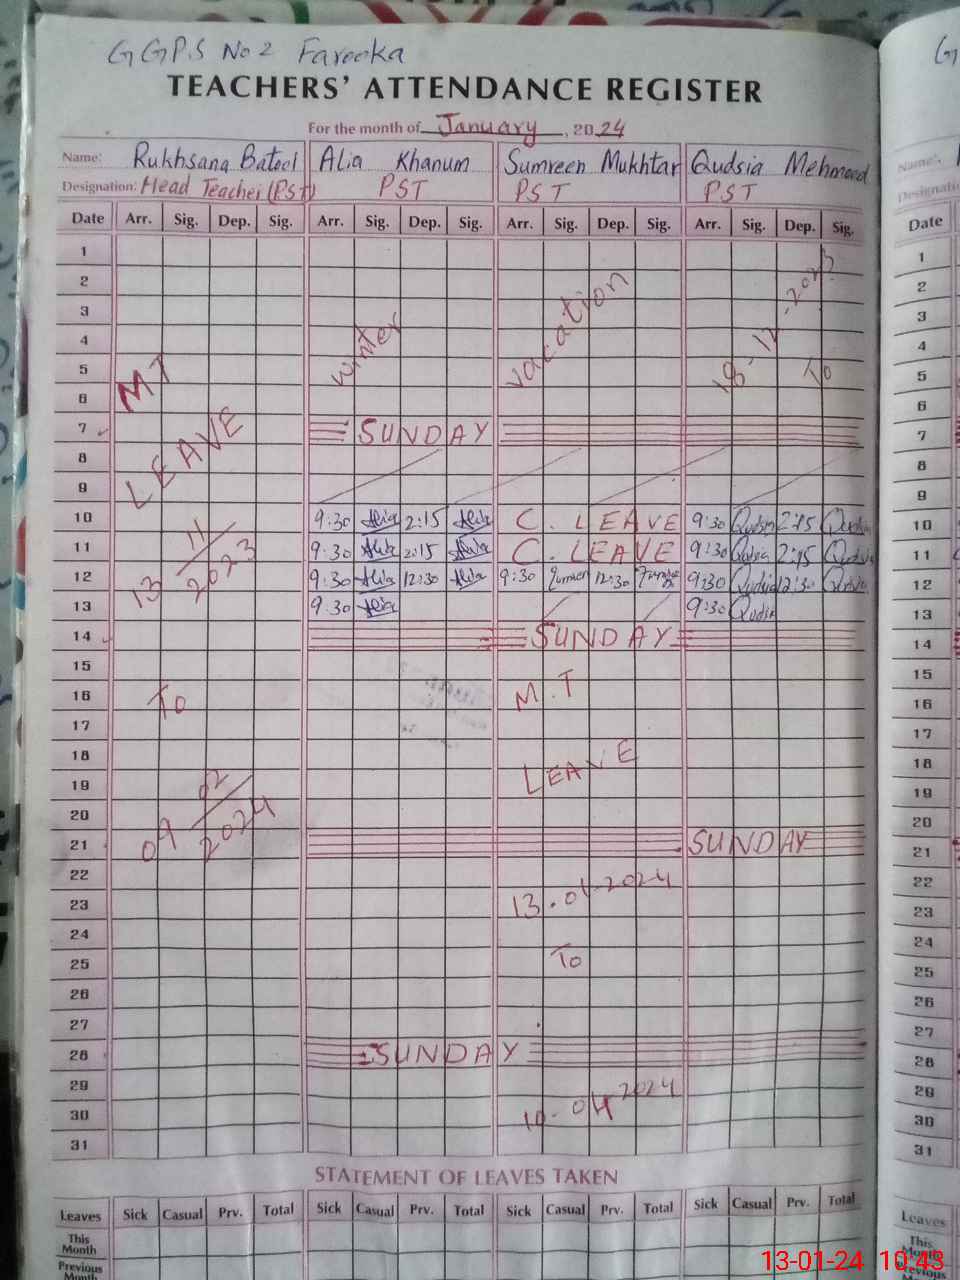 GGPS No 2 Farooka
TEACHERS' ATTENDANCE REGISTER
For the month of January, 2024
Name: Rukhsana Batool Alia Khanum Sumreen Mukhtar Qudsia Mehmood
Designation: Head Teacher (PST) PST PST PST
Date Arr. Sig. Dep. Sig. Arr. Sig. Dep. Sig. Arr. Sig. Dep. Sig. Arr. Sig. Dep. Sig. Date
1 1
2 18-12-2023 2
3 winter vacation 3
4 4
5 MT To 5
6 6
7 SUNDAY 7
8 LEAVE 8
9 9
10 9:30 Alia 2:15 Alia C. LEAVE 9:30 Qudsia 2:15 Qudsia 10
11 13/11/2023 9:30 Alia 2:15 Alia C. LEAVE 9:30 Qudsia 2:15 Qudsia 11
12 9:30 Alia 12:30 Alia 9:30 Sumreen 12:30 9:30 Qudsia 12:30 Qudsia 12
13 9:30 Alia 9:30 Qudsia 13
14 SUNDAY 14
15 15
16 To M.T 16
17 17
18 18
19 LEAVE 19
20 09/02/2024 20
21 SUNDAY 21
22 22
23 13.01-2024 23
24 24
25 To 25
26 26
27 27
28 SUNDAY 28
29 29
30 10-04-2024 30
31 31
STATEMENT OF LEAVES TAKEN
Leaves Sick Casual Prv. Total Sick Casual Prv. Total Sick Casual Prv. Total Sick Casual Prv. Total Leaves
This Month This Month
Previous Month Previous
13-01-24 10:43